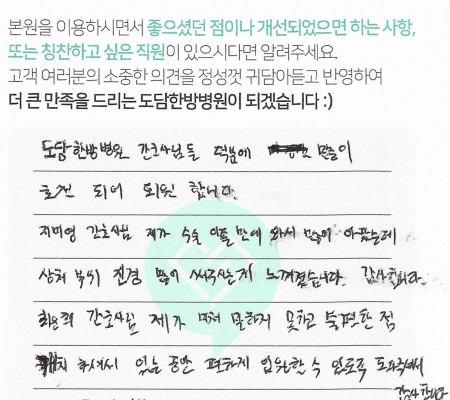 본원을 이용하시면서 좋으셨던 점이나 개선되었으면 하는 사항,
또는 칭찬하고 싶은 직원이 있으시다면 알려주세요.
고객 여러분의 소중한 의견을 정성껏 귀담아듣고 반영하여
더 큰 만족을 드리는 도담한방병원이 되겠습니다 :)
도담한방병원 간호사님들 덕분에 많이
호전 되어 퇴원 합니다.
지미영 간호사님 제가 수술 이틀만에 와서 많이 아팠는데
상처 부위 신경 많이 써주시는게 느껴졌습니다. 감사합니다.
간호사님 제가 미처 말하지 못하고 불편한 점
하셔서 있는 동안 편하게 입원할 수 있도록 도와주셔서
감사합니다